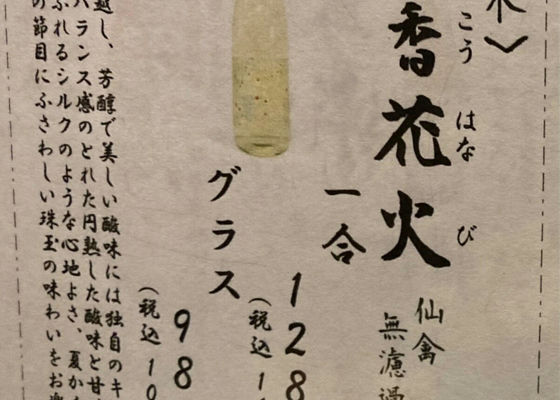 木﹀
香花火
こう はな び
仙禽
無濾過
一合
128
(税込1
グラス
98
(税込10
越し、芳醇で美しい酸味には独自のキ
バランス感のとれた円熟した酸味と甘
ふれるシルクのような心地よさ、夏か
の節目にふさわしい珠玉の味わいをお楽